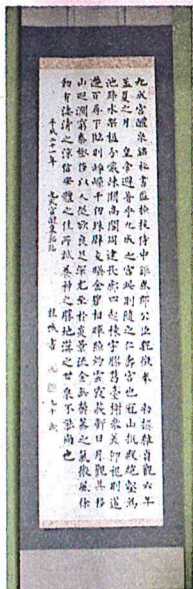 九成宮醴泉銘秘書監檢校侍中鉅鹿郡公臣魏徵奉 勅撰維貞觀六年
孟夏之月 皇帝避暑乎九成之宮此則隨之仁壽宮也冠山抗殿絕壑為
池跨水架楹分巖竦闕高閣周建長廊四起棟宇膠葛臺榭參差仰視則迢
遰百尋下臨則崢嶸千仞珠璧交映金碧相暉照灼雲霞蔽虧日月觀其移
山迴澗窮泰極侈以人從欲良足深尤至於炎景流金無鬱蒸之氣微風徐
動有淒清之涼信安體之佳所誠養神之勝地漢之甘泉不能尚也
平成二十一年 九成宮醴泉銘 書 七十